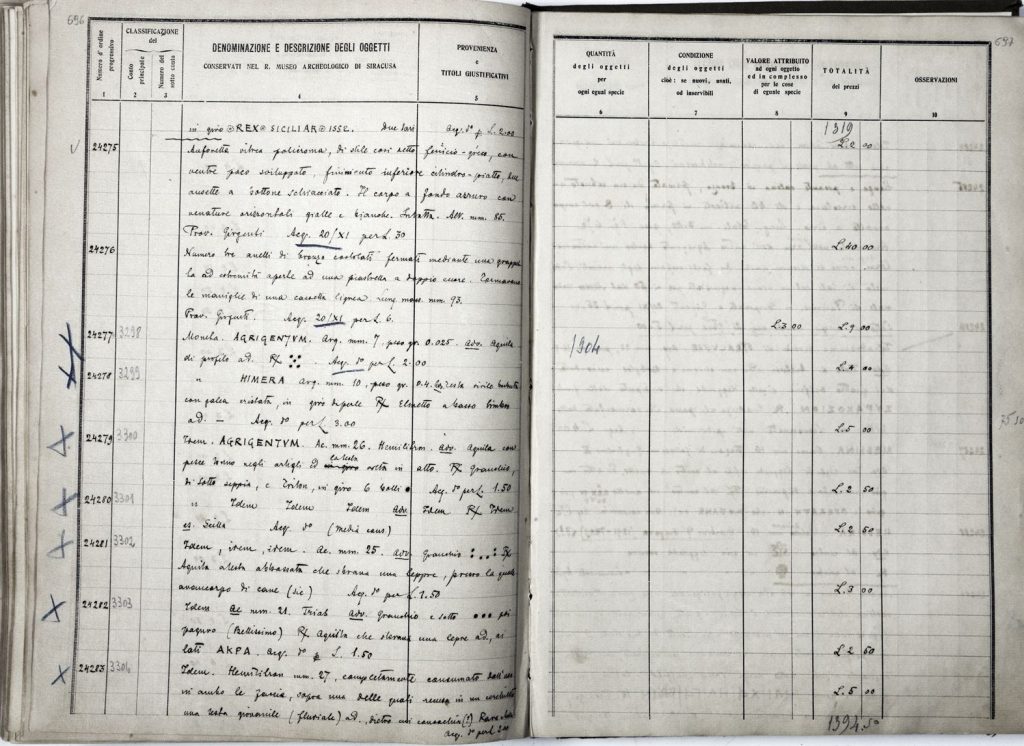 696
Numero d'ordine progressivo
CLASSIFICAZIONE del
Conto principale
Numero del sotto conto
DENOMINAZIONE E DESCRIZIONE DEGLI OGGETTI
CONSERVATI NEL R. MUSEO ARCHEOLOGICO DI SIRACUSA
PROVENIENZA
e
TITOLI GIUSTIFICATIVI
1 2 3 4 5
in giro REX SICILIAR 1552. Due tarì Acq. d° p L. 2.00
24275 Anforetta vitrea policroma, di stile così detto fenicio-greco, con
ventre poco sviluppato, finimento inferiore cilindro-piatto, due
ansette a bottone schiacciato. Il corpo a fondo azzurro con
venature orizzontali gialle e bianche. Intatta. Alt. mm. 85.
Prov. Girgenti Acq. 20/XI per L. 30
24276 Numero tre anelli di bronzo costolati fermati mediante una
la ad estremità aperte ad una piastrella a doppio cuore. Formavano
le maniglie di una cassetta lignea. mm. 93.
Prov. Girgenti. Acq. 20/XI per L. 6.
24277 3298 Moneta. AGRIGENTVM. Arg. mm. 7, peso gr. 0.025. adv. Aquila
di profilo ad. Acq. d° per L. 2.00
24278 3299 " HIMERA arg. mm. 10, peso gr. 0.4. testa virile barbuta
con galea cristata, in giro di perle Elmetto a basso
ad. — Acq. d° per L. 3.00
24279 3300 Idem. AGRIGENTVM. Ae. mm. 26. Hemilitron. adv. Aquila con
pesce tonno negli artigli ed la testa volta in alto. Granchio,
di sotto seppia, e Triton, in giro 6 bolli Acq. d° per L. 1.50
24280 3301 " Idem Idem Idem adv. Idem Idem
es. Scilla Acq. d° (media cons.)
24281 3302 Idem, idem, idem. Ae. mm. 25. adv. Granchio
Aquila a testa abbassata che sbrana una leppre, presso la quale
avancorpo di cane (sic) Acq. d° per L. 1.50
24282 3303 Idem ae mm. 21. Trias adv. Granchio e sotto
paguro (Bellissimo) Aquila che sbrana una lepre ad, ai
lati AKPA. Acq. d° p L. 1.50
24283 3304 Idem. Hemilitron mm. 27, completamente consumato dall'uso
in ambo le faccie, sopra una delle quali
una testa giovanile (fluviale) ad., dietro
Acq. d° per L. 2.00
697
QUANTITÀ
degli oggetti
per
ogni egual specie
CONDIZIONE
degli oggetti
cioè: se nuovi, usati,
od inservibili
VALORE ATTRIBUITO
ad ogni oggetto
ed in complesso
per le cose
di eguale specie
TOTALITÀ
dei prezzi
OSSERVAZIONI
6 7 8 9 10
1319
L. 2 00
L. 40 00
L. 3 00 L. 9 00
1904
L. 4 00
L. 5 00
L. 2 50
L. 2 50
L. 3 00
L. 2 50
L. 5 00
1394.50